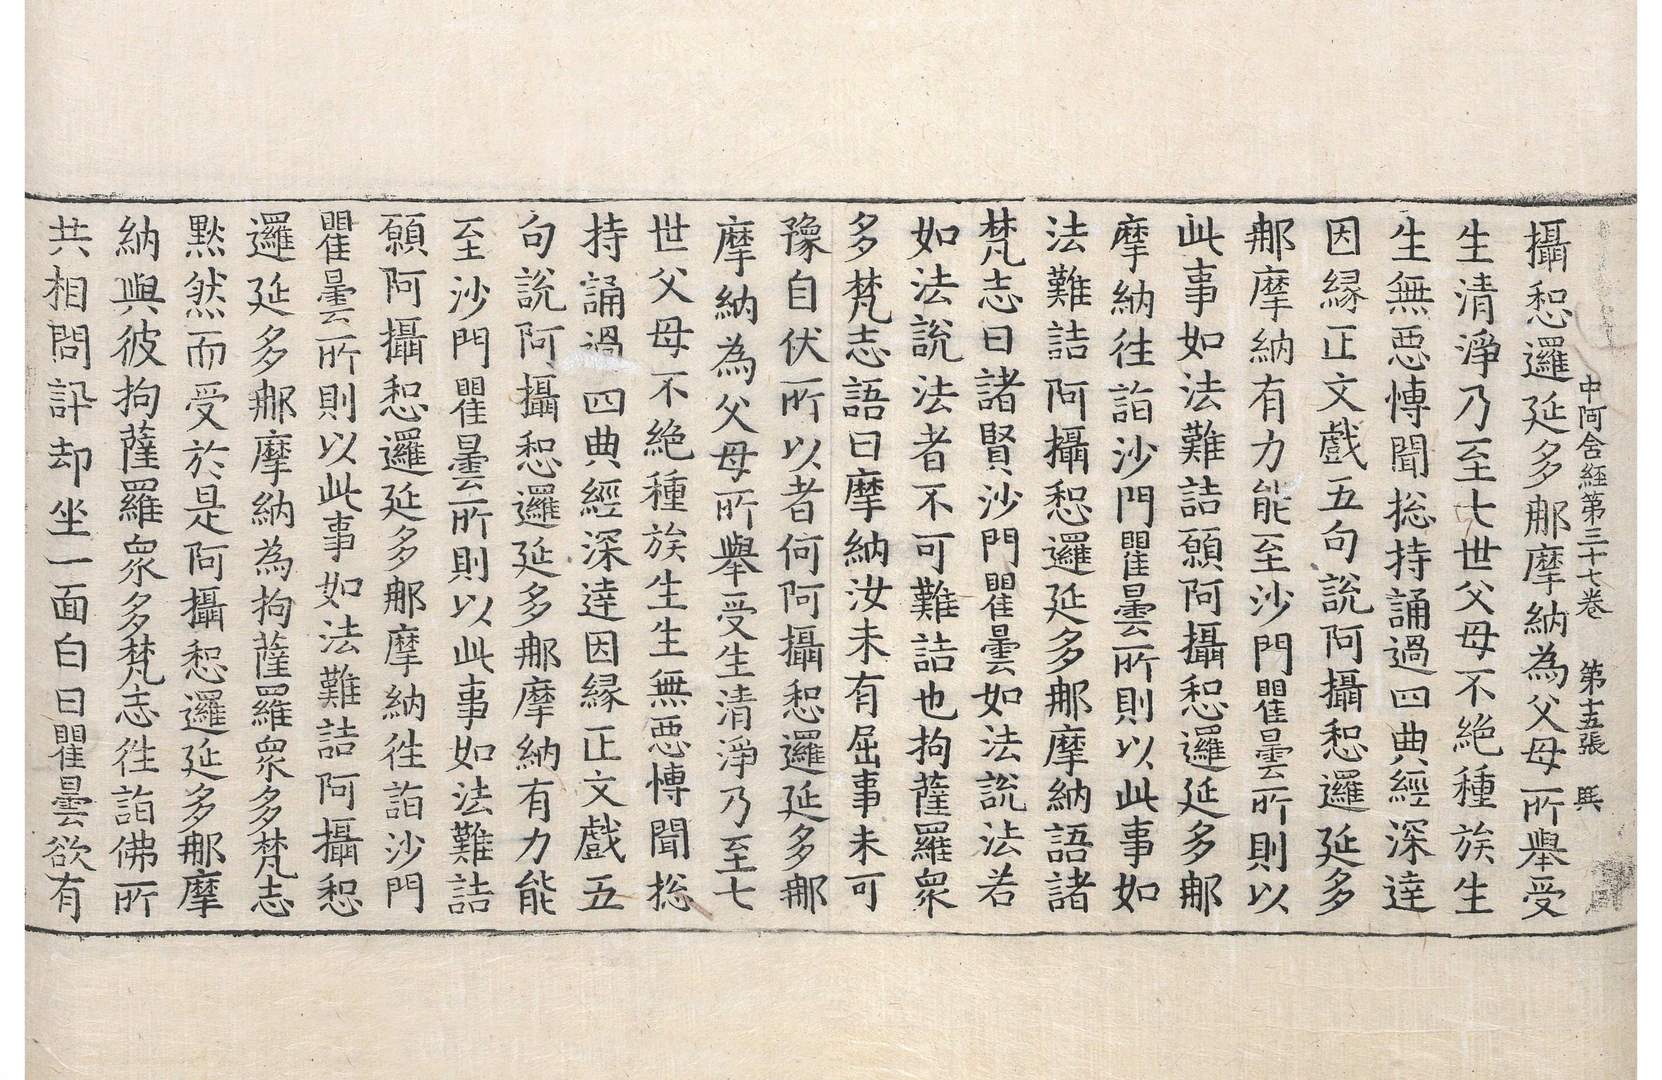 中阿含經第三十七卷　第十五張　興
攝惒邏延多那摩納為父母所舉受
生清淨乃至七世父母不絕種族生
生無惡博聞揔持誦過四典經深達
因緣正文戲五句說阿攝惒邏延多
那摩納有力能至沙門瞿曇所則以
此事如法難詰願阿攝惒邏延多那
摩納往詣沙門瞿曇所則以此事如
法難詰阿攝惒邏延多那摩納語諸
梵志曰諸賢沙門瞿曇如法說法若
如法說法者不可難詰也拘薩羅眾
多梵志語曰摩納汝未有屈事未可
豫自伏所以者何阿攝惒邏延多那
摩納為父母所舉受生清淨乃至七
世父母不絕種族生生無惡博聞揔
持誦過四典經深達因緣正文戲五
句說阿攝惒邏延多那摩納有力能
至沙門瞿曇所則以此事如法難詰
願阿攝惒邏延多那摩納往詣沙門
瞿曇所則以此事如法難詰阿攝惒
邏延多那摩納為拘薩羅眾多梵志
默然而受於是阿攝惒邏延多那摩
納與彼拘薩羅眾多梵志往詣佛所
共相問訊却坐一面白曰瞿曇欲有